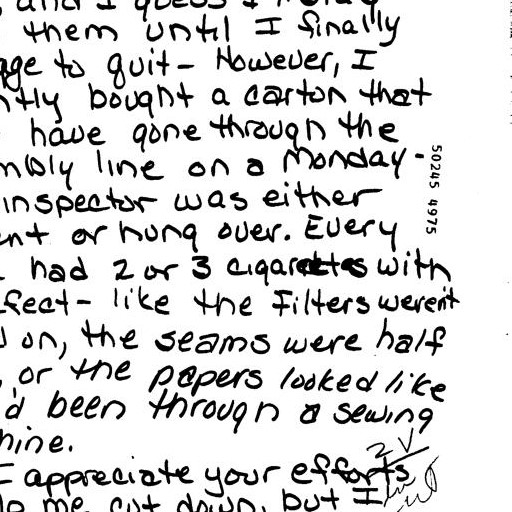 and I guess I
them until I finally
age to quit - However, I
ntly bought a carton that
have gone through the
mbly line on a Monday -
inspector was either
ent or hung over. Every
had 2 or 3 cigarettes with
fect - like the Filters weren't
on, the seams were half
, or the papers looked like
'd been through a sewing
hine.
I appreciate your efforts
me cut down, but I
50245 4975